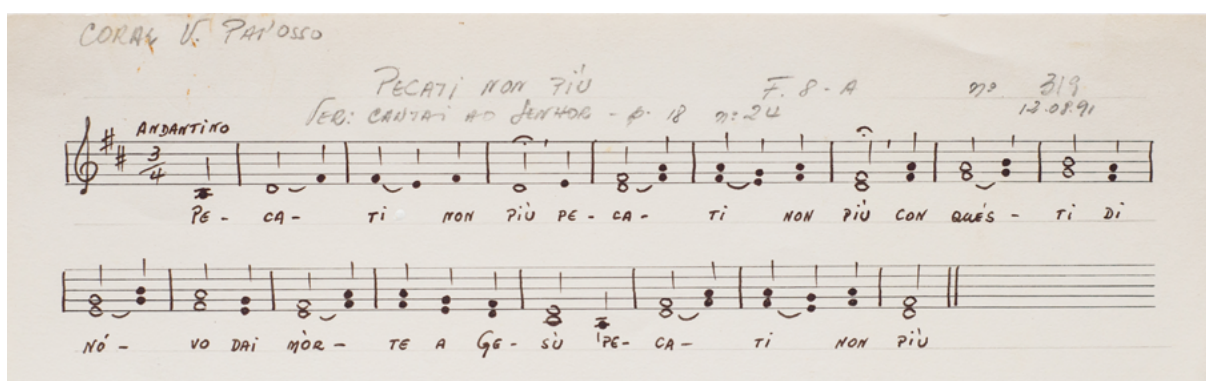 CORAL V. PAI'OSSO
PECATI NON PIÙ F. 8 - A nº 319
VER: CANTAI AO SENHOR - p. 18 nº 24 12.08.91
ANDANTINO
3/4
PE - CA - TI NON PIÙ PE - CA - TI NON PIÙ CON QUÉS - TI DI
NÓ - VO DAI MÒR - TE A GE - SÙ PE - CA - TI NON PIÙ